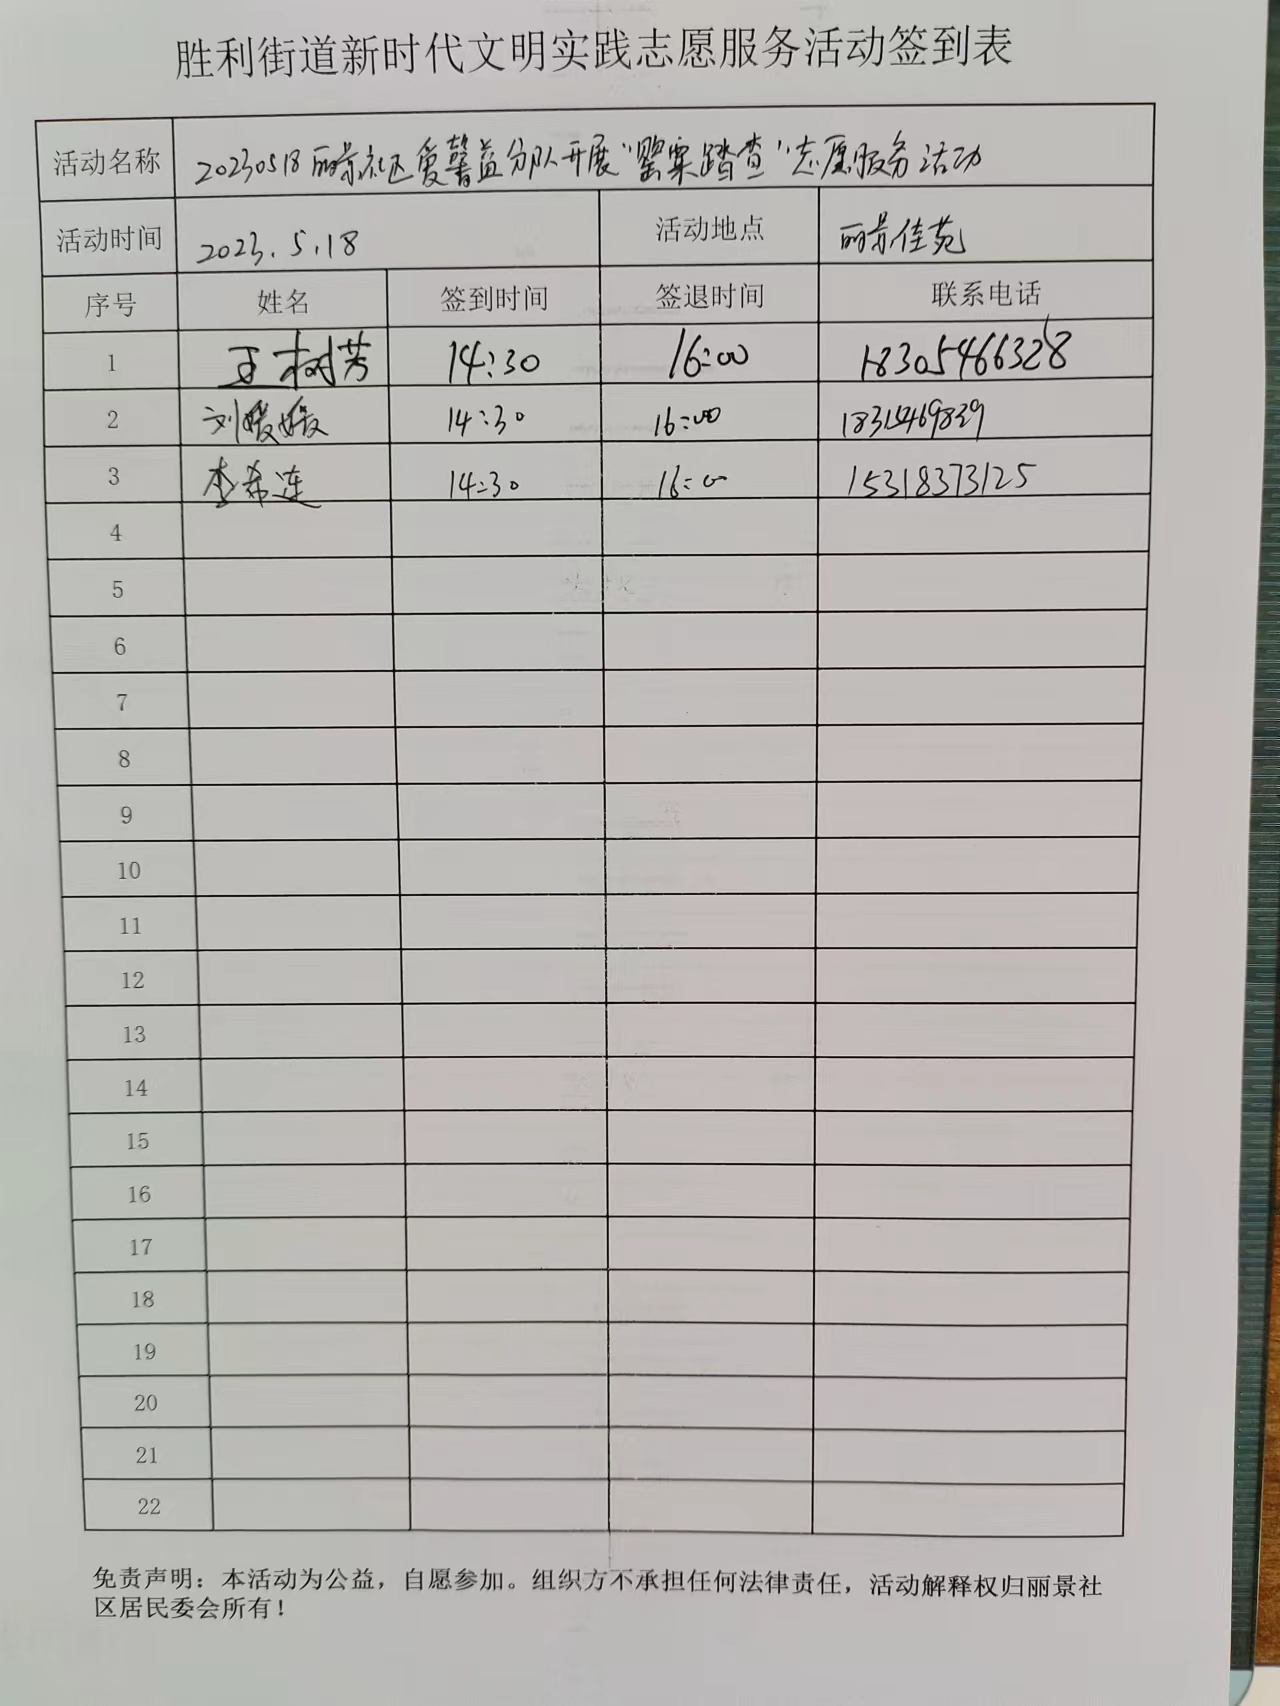 胜利街道新时代文明实践志愿服务活动签到表
活动名称 20230518丽景社区爱馨益分队开展"罂粟踏查"志愿服务活动
活动时间 2023.5.18 活动地点 丽景佳苑
序号 姓名 签到时间 签退时间 联系电话
1 王树芳 14:30 16:00 18305466328
2 刘媛媛 14:30 16:00
3 李希连 14:30 16:00 15318373125
4
5
6
7
8
9
10
11
12
13
14
15
16
17
18
19
20
21
22
免责声明：本活动为公益，自愿参加。组织方不承担任何法律责任，活动解释权归丽景社
区居民委会所有！